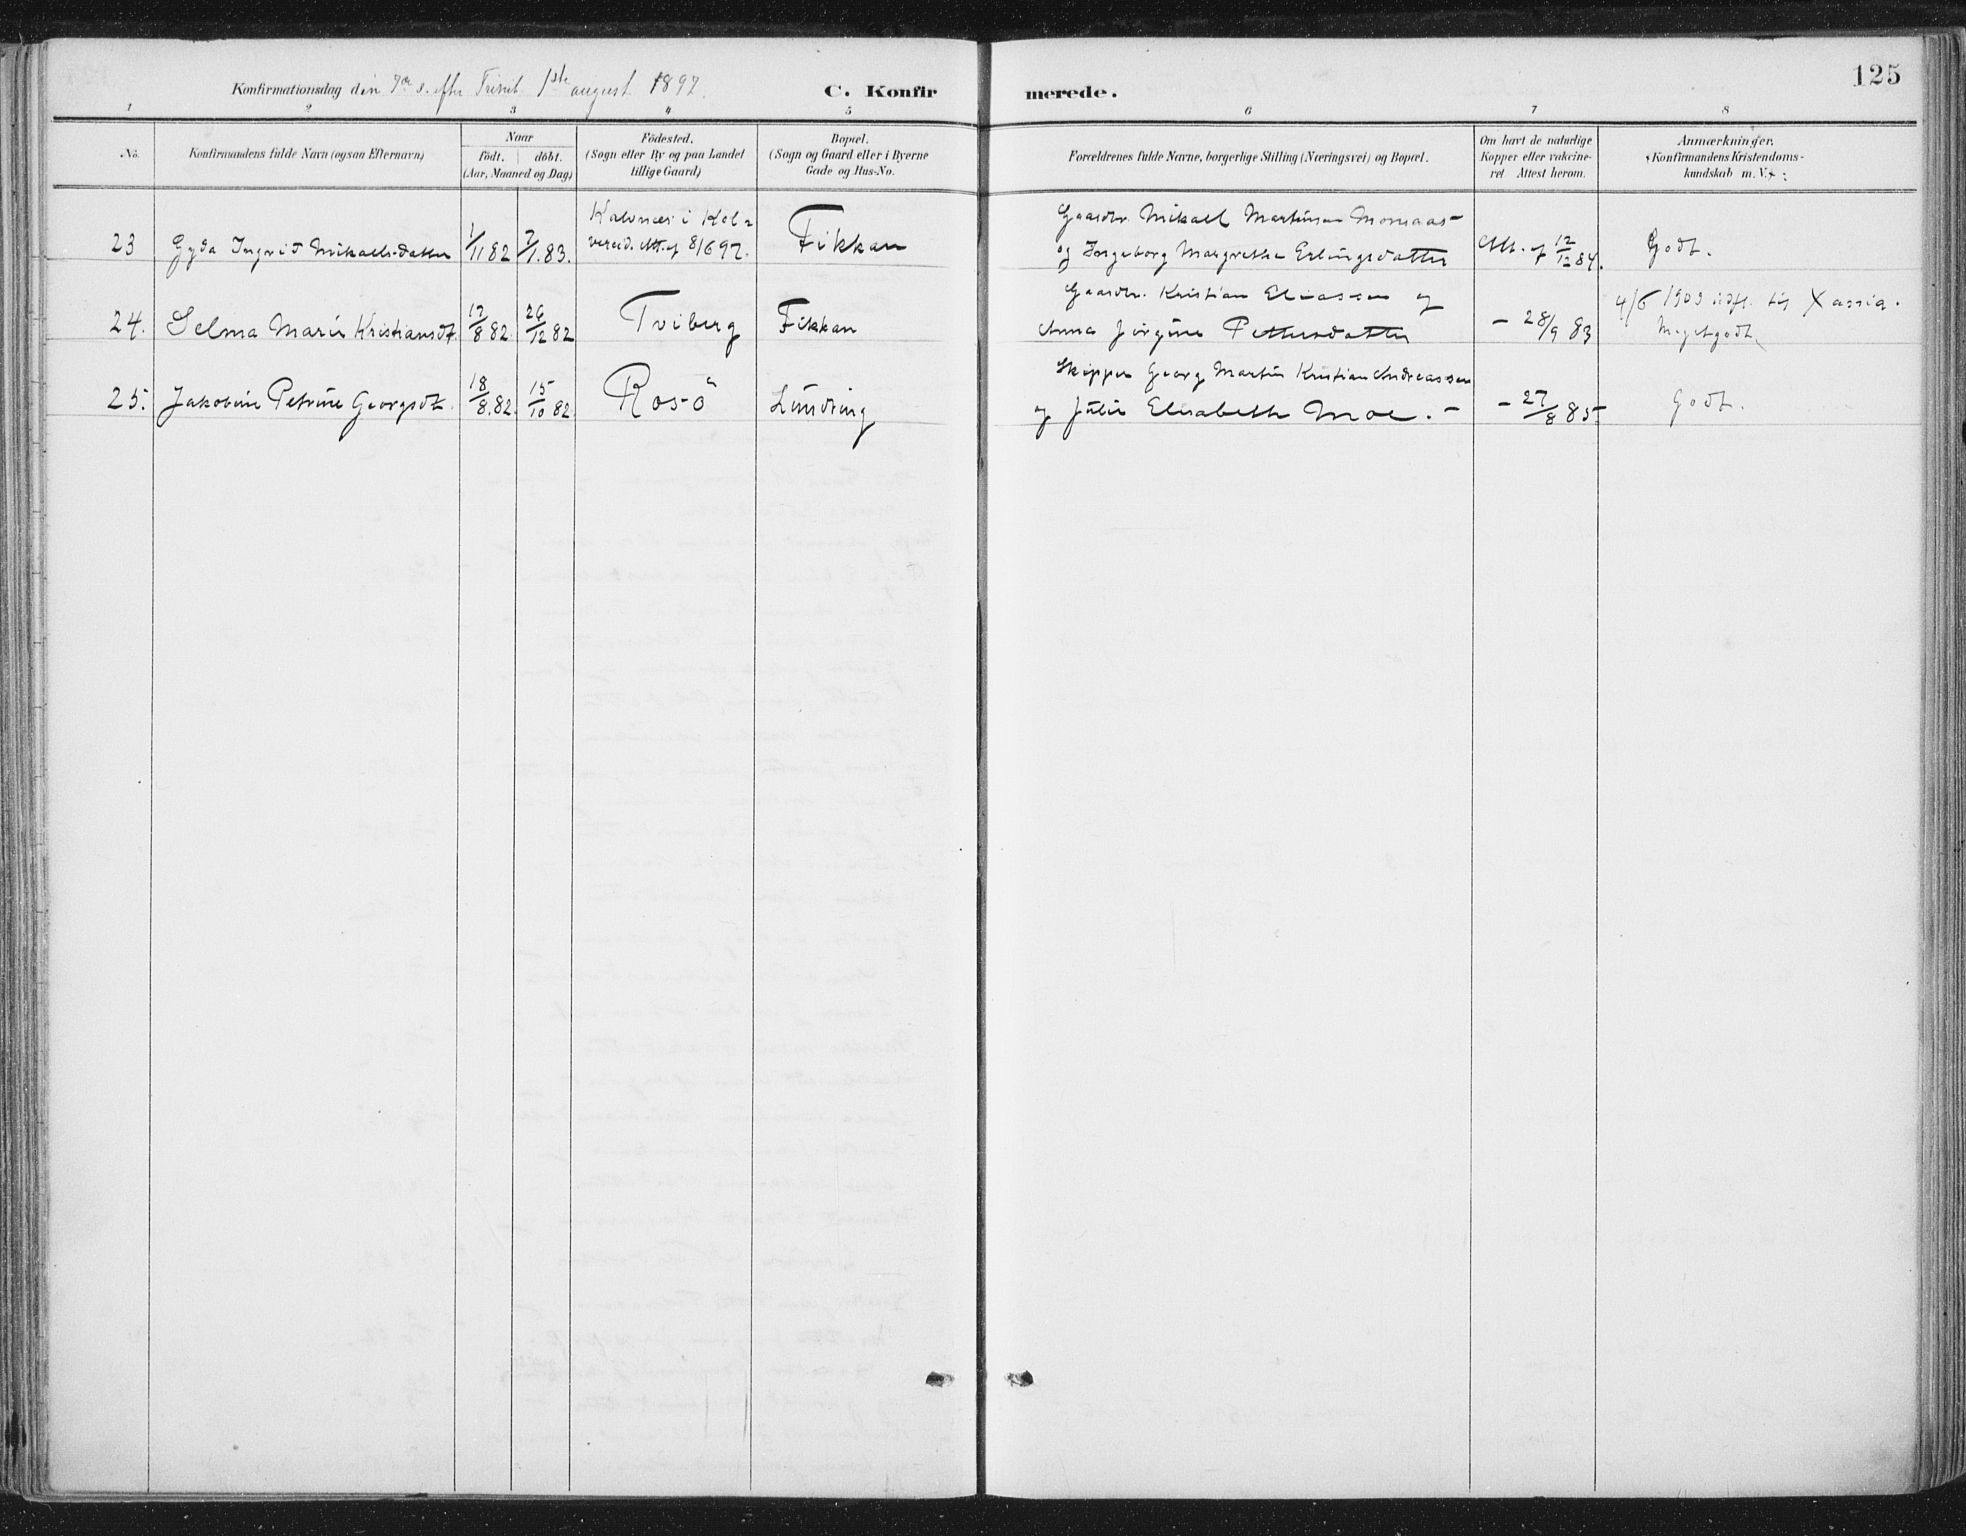 125
Konfirmationsdag den 7de S. efter Trinit. 1ste august 1897.
C. Konfirmerede.
1 2 3 4 5 6 7 8
No.
Konfirmandens fulde Navn (ogsaa Efternavn)
Naar
födt. döbt.
(Aar, Maaned og Dag)
Födested.
(Sogn eller By og paa Landet
tillige Gaard)
Bopæl.
(Sogn og Gaard eller i Byerne
Gade og Hus-No.
Forældrenes fulde Navne, borgerlige Stilling (Næringsvei) og Bopæl.
Om havt de naturlige
Kopper eller vakcine-
ret Attest herom.
Anmærkninger.
(Konfirmandens Kristendoms-
kundskab m. V.) :
23 Gyda Ingrid Mikaelsdatter 1/11 82 7/1 83. Kalvnes i Kol-
vereid. Att. af 8/6 97. Fikkan
Gaardbr. Mikael Martinsen
og Ingeborg Margrethe Erlingsdatter Att. af 12/12 84. Godt.
24. Selma Marie Kristiansdt. 17/8 82. 26/12 82 Tviberg Fikkan
Gaardbr. Kristian Eliassen og
Anna Jörgine Pettersdatter - 28/9 83
4/5 1909 udfl. til Xania.
Megetgodt.
25. Jakobine Petrine Georgsdt. 18/8.82. 15/10 82 Rosö Lundring
Skipper Georg Martin Kristian Andreassen
og Julie Elisabeth Moe. - - 27/8 85 Godt.